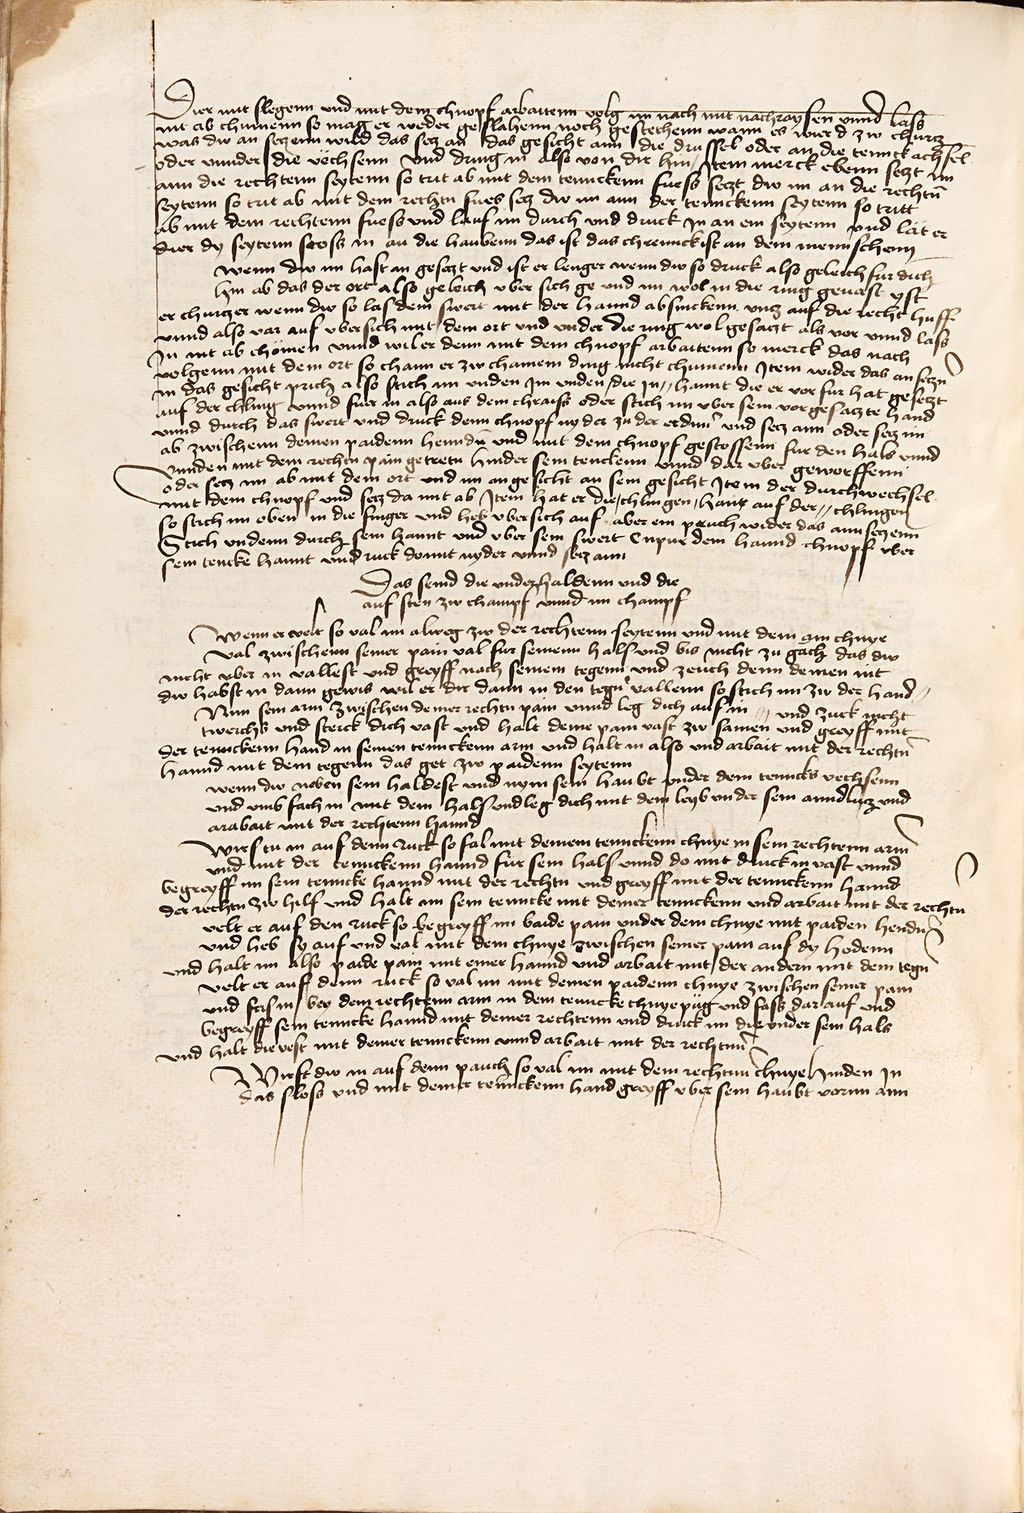 Dier mit slegenn vnd mit dem chnopf arbaittenn volg im nach mit nachraysen vnnd lass
nit ab chumenn so mag er weder geslahenn noch gestechenn wann es wierd zw churcz
was dw an seczenn wild das secz an das gesicht ann die drussel oder an die tennck achsel
oder vnnder die vechsenn vnd dring in also von dir hin Item merck ebenn seczt im
ann die rechtenn seytenn so trit ab mit dem tennckenn fuess seczt dw im an die rechtn
seytenn so trit ab mit dem rechtn fues secz dw im ann der tennckenn seytenn so tritt
ab mit dem rechtenn fuess vnd lauf im durch vnd druck In an ein seytenn vnd lat er
dier dy seytenn stoss in an die haubenn das ist das chrennckist an dem mennschenn
wenn dw im hast an geseczt vnd ist er lenger wenn dw so druck also geleich fur dich
hin ab das der ort also geleich vber sich ge vnd im wol in die ring geuast yst
er churczer wenn dw so las dein swert mit der hannd absinckenn vncz auf die recht huff
vnnd also var auf vbersich mit dem ort vnd vnder die ring wol gesaczt als vor vnnd lass
In nit ab chömen vnnd wil er denn mit dem chnopf arbaitenn so merck das nach
volgenn mit dem ort so chann er zw chainem ding nicht chumenn Item wider das an seczn
in das gesicht prich also stich im vnden In vnden die in hannt die er vor fur hat geseczt
auf der chling vnnd fuer in also aus dem chraiss oder stich im vber sein vorgesaczte hand
vnnd durch das swert vnd druck denn chnopf nyder zu der erdnn vnd secz ann oder secz im
ab zwischenn deinen paidenn henndn vnd mit dem chnopf gestossenn fur den hals vnnd
vnnden mit dem rechtn pain getretn hinder sein tenckenn vnnd dar vber geworffenn
oder secz im ab mit dem ort vnd im angesicht an sein gesicht Item der durchwechsel
mit dem chnopf vnd secz da mit ab Item hat er die chlingen hant auf der chlingen
so stich im oben in die finger vnd heb vbersich auf aber ein pruch wider das annseczenn
Stich vndenn durch sein hannt vnd vber sein swert dem hannd chnopf vber
sein tencke hannt vnd ruck domit nyder vnnd secz ann
Das seind die vnderhaldenn vnd die
auf sten zw champf vnnd im champf
Wenn er velt so val im alweg zw der rechtenn seytenn vnd mit dem ain chnye
val zwischenn seinen pain val fur seinenn hals vnd bis nicht zu gäch das dw
nicht vber in vallest vnd greyff nach seinem tegenn vnd zeuch denn deinen nit
dw habst in dann gewis wil er dir dann in den tegn vallenn so stich im zw der hand
Nim sein arm zwischen deine rechtn pain vnnd leg dich auf in vnd zuck nicht
twerchs vnd sterck dich vast vnd halt deine pain vast zw samen vnd greyff mit
der tennckenn hand in seinen tennckenn arm vnd halt in also vnd arbait mit der rechtn
hannd mit dem tegenn das get zw paidenn seytenn
wenn dw neben sein haldest vnd nym sein haubt vnder dein tenncks vechsenn
vnd vmb fach in mit dem hals vnd leg dich mit dem leyb vnder sein anndlicz vnd
arabait mit der rechtenn hannd
Wirfstu in auf denn Ruck so fal mit deinem tennckenn chnye in sein rechtenn arm
vnd mit der tennckenn hannd fur sein hals vnnd do mit druck in vast vnnd
begreyff im sein tenncke hannd mit der rechtn vnd greyff mit der tennckenn hannd
der rechtn zw hilf vnd halt im sein tenncke mit deiner tennckenn vnd arbait mit der rechtn
velt er auf den ruck so begreyff im baide pain vnder dem chnye mit paiden hendn
vnd heb sy auf vnd val mit dem chnye zwischen seiner pain auf dy hodenn
vnd halt im also paide pain mit einer hannd vnd arbait mit der andern mit dem tegn
velt er auf denn ruck so val im mit deinen paidenn chnye zwischen seine pain
vnd fass in bey dem rechtenn arm in dem tenncke chnyepüg vnd sass dar auf vnd
begreyff sein tenncke hannd mit deiner rechtenn vnd druck im die vnder sein hals
vnd halt die vest mit deiner tennckenn vnnd arbait mit der rechtnn
Wirfst dw in auf denn pauch so val im mit dem rechtnn chnye hinden in
das sloss vnd mit deiner tennckenn hand greyff vber sein haubt vornn ann